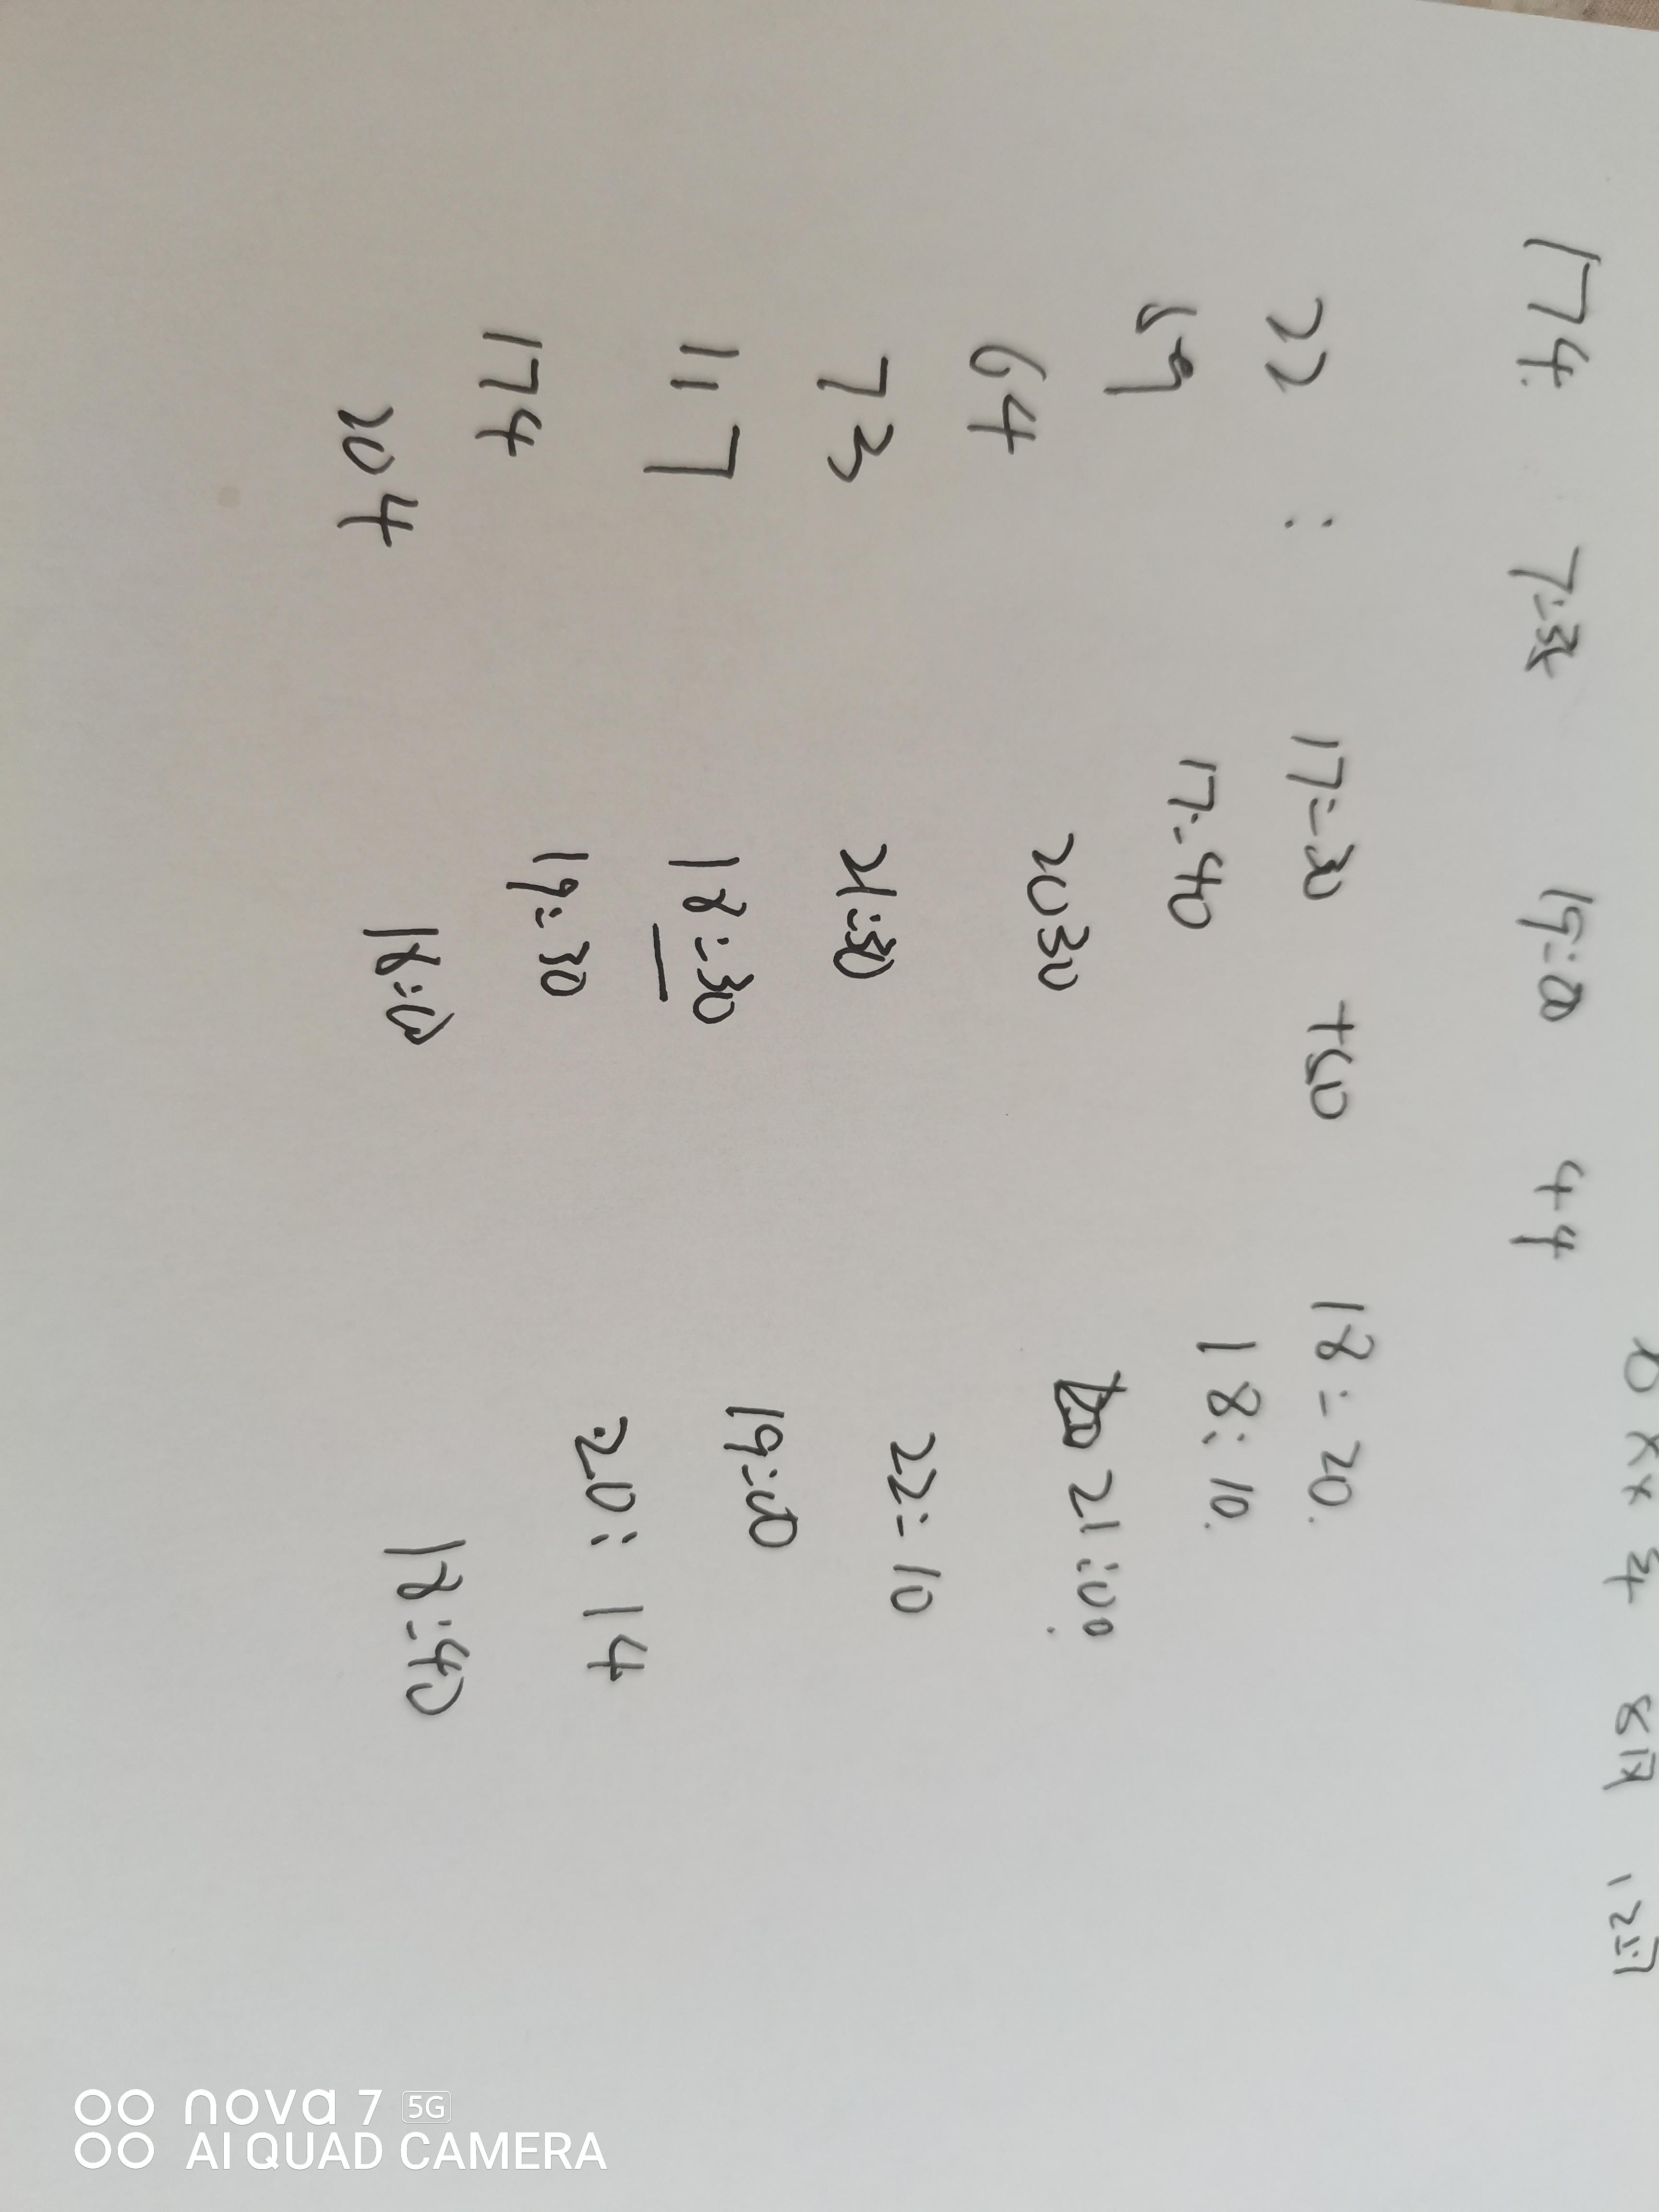 174 7:35 19:00 44
22 : 17:30 +50 18:20.
17:40 18:10.
64 2030 21:00.
73 21:30 22:10
117 18:30 19:00
174 19:30 20:14
204 18:00 18:40
nova 7 5G
AI QUAD CAMERA